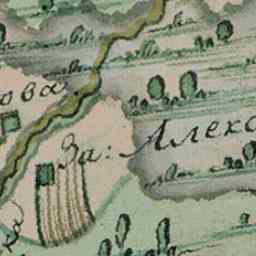 ова.
За: Алекс